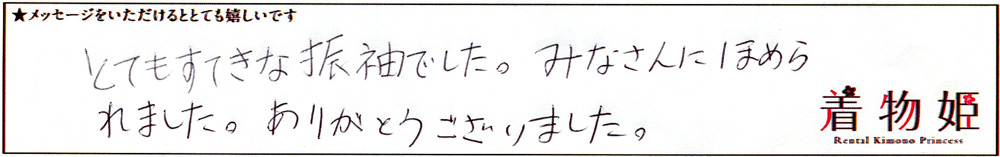 ★メッセージをいただけるととても嬉しいです
とてもすてきな振袖でした。みなさんにほめら
れました。ありがとうございました。
着物姫
Rental Kimono Princess